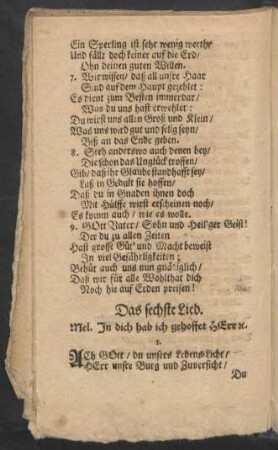 Ein Sperling ist sehr wenig werth/
Und fälle doch keiner auf die Erd/
Ohn deinen guten Willen.
7. Wir wissen/ daß all unsre Haar
Sind auf dem Haupt gezehlet:
Es dient zum Besten immerdar/
Was du uns hast erwehlet:
Du wirst uns allen Groß und Klein/
Was uns wird gut und selig seyn/
Biß an das Ende geben.
8. Steh anderswo auch denen bey/
Die schon das Unglück troffen/
Gib/ daß ihr Glaube standhafft sey/
Laß in Gedult sie hoffen/
Daß du in Gnaden ihnen doch
Mit Hülffe wirst erscheinen noch/
Es komm auch/ wie es wolle.
9. GOtt Vater/ Sohn und Heil'ger Geist!
Der du zu allen Zeiten
Hast grosse Güt' und Macht beweist
In viel Gefährligkeiten;
Behüt auch uns nun gnädiglich/
Daß wir für alle Wohlthat dich
Noch hie auf Erden preisen!
Das sechste Lied.
Mel. In dich hab ich gehoffet HErr ꝛc.
1.
ACh GOtt/ du unsers Lebens-Licht/
HErr unsre Burg und Zuversicht/
Du